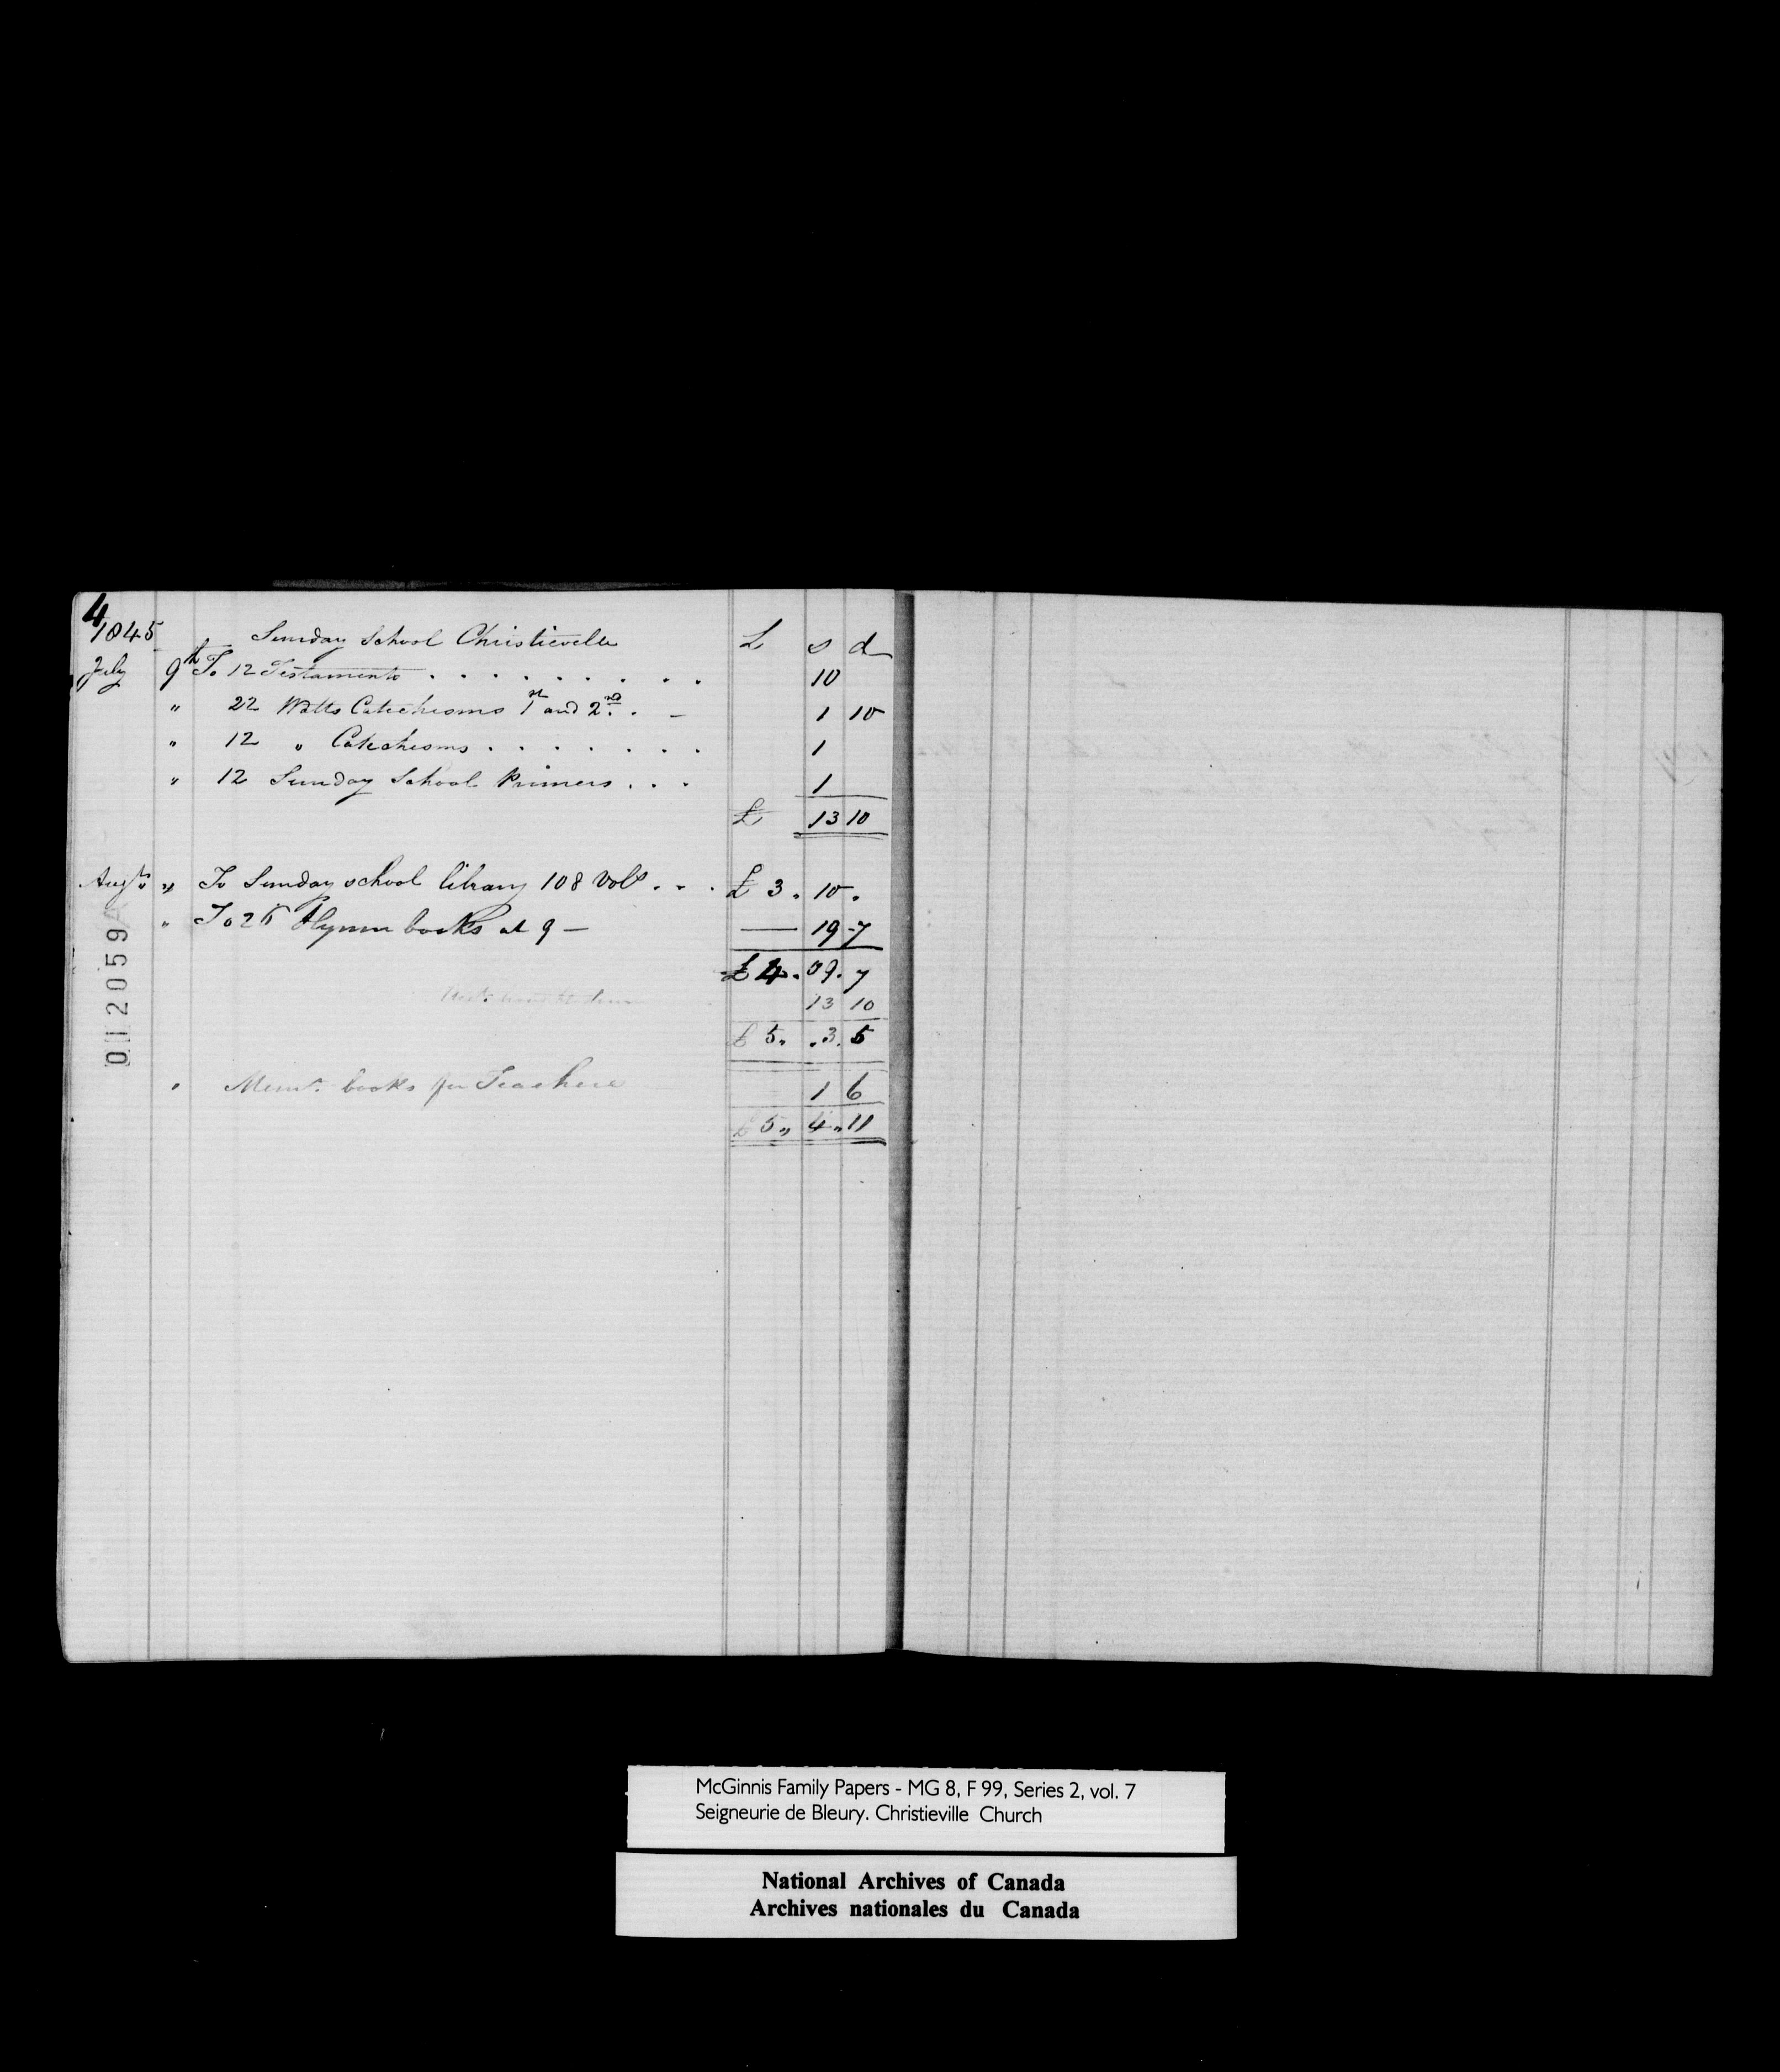 4
1845 Sunday School Christieville £ s d
July 9th To 12 Testaments . . . . . . . . . 10
" 22 Watts Catechisms 1st and 2nd . . - 1 10
" 12 " Catechisms . . . . . . . 1
" 12 Sunday School Primers . . . 1
£ 13 10
Augt " To Sunday school library 108 Vols . . . £ 3 . 10 .
" To 26 Hymn books at 9 — — 19 7
£ 4 . 09 . 7
13 10
£ 5 . . 3 . 5
" Memt. books for Teachers 1 6
£ 5 " 4 " 11
012059A
McGinnis Family Papers - MG 8, F 99, Series 2, vol. 7
Seigneurie de Bleury. Christieville Church
National Archives of Canada
Archives nationales du Canada